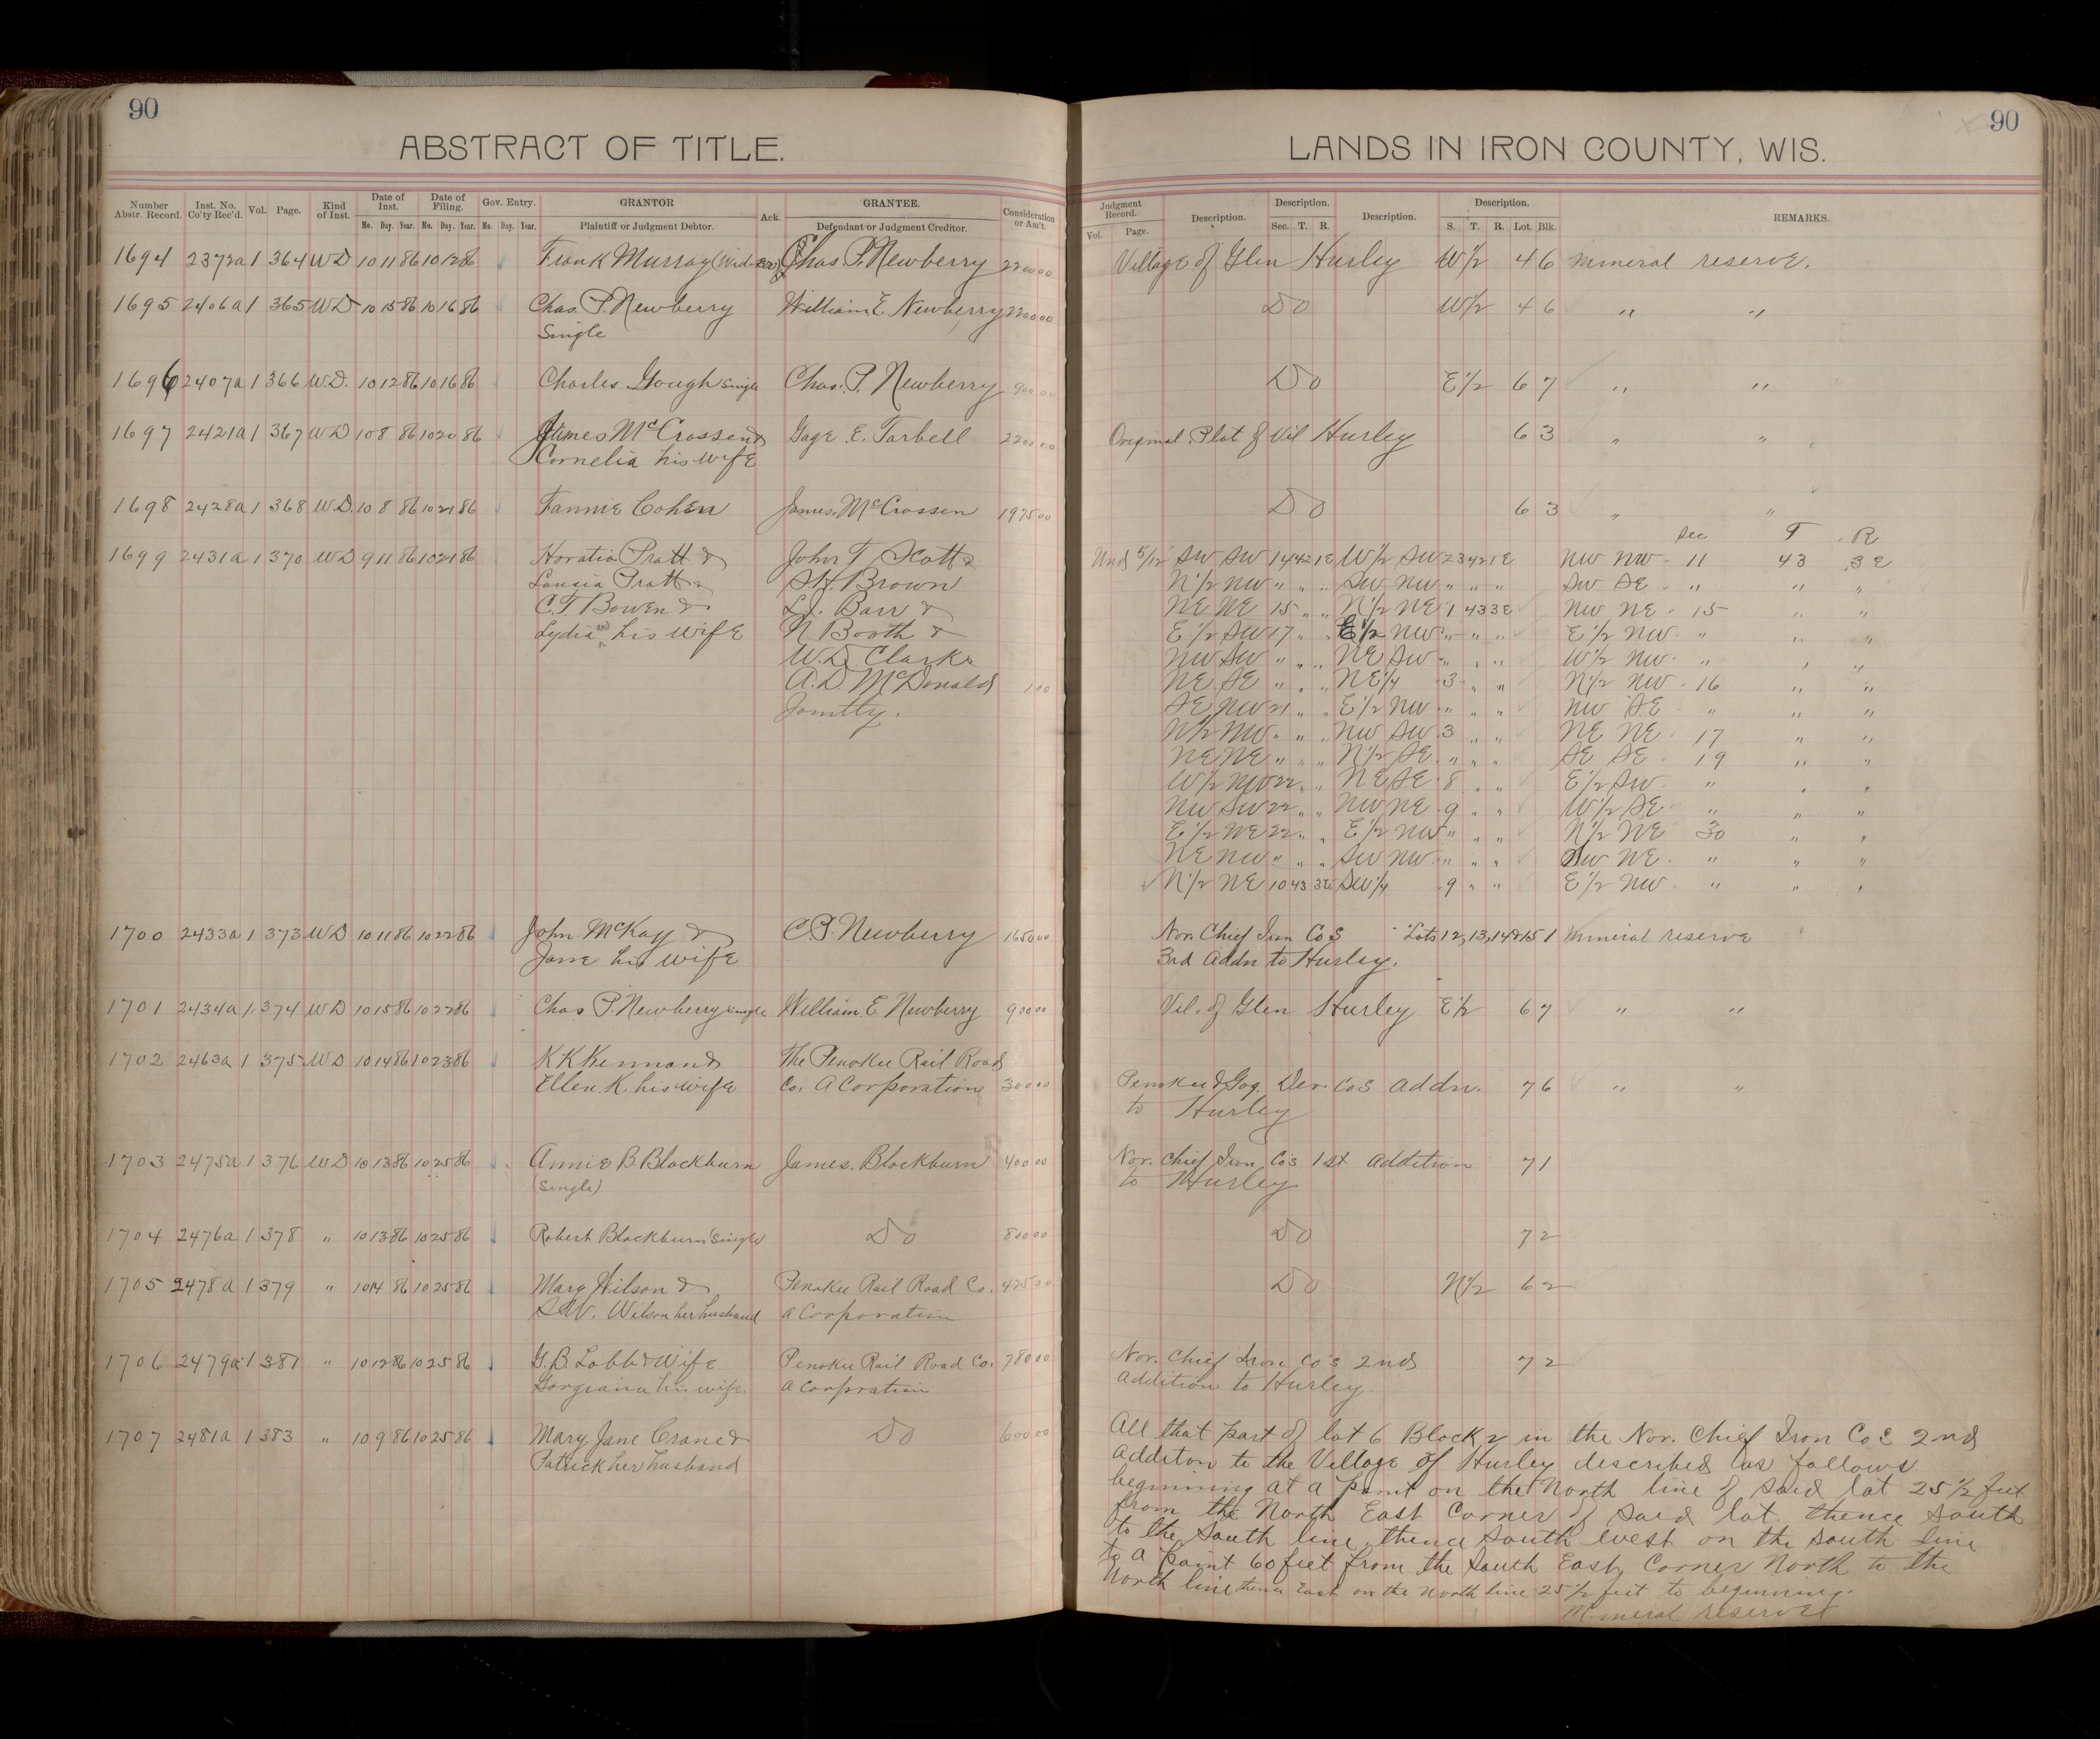 90
ABSTRACT OF TITLE.
Number Abstr. Record. Inst. No. Co'ty Rec'd. Vol. Page. Kind of Inst. Date of Inst. Date of Filing. Gov. Entry. GRANTOR Ack. GRANTEE. Consideration or Am't.
Mo. Day. Year. Mo. Day. Year. Mo. Day. Year. Plaintiff or Judgment Debtor. Defendant or Judgment Creditor.
1694 2372a 1 364 WD 10 11 86 10 12 86 Frank Murray Chas P. Newberry 2200 00
1695 2406a 1 365 WD 10 15 86 10 16 86 Chas. P. Newberry William E Newberry 2200 00
Single
1696 2407a 1 366 W.D. 10 12 86 10 16 86 Charles Gough single Chas. P. Newberry 900 00
1697 2421a 1 367 WD 10 8 86 10 20 86 James McCrossen & Gage. E. Tarbell 2200 00
Cornelia his wife
1698 2428a 1 368 W.D. 10 8 86 10 21 86 Fannie Cohen James McCrossen 1975 00
1699 2431a 1 370 WD 9 11 86 10 21 86 Horatio Pratt & John T Scott &
Pratt & Brown
C.T Bowen & Barr &
Lydia his wife N Booth &
W.D Clark &
A.D McDonald 1 00
Jointly.
1700 2433a 1 373 WD 10 11 86 10 22 86 John McKay & C.P. Newberry 1650 00
Jane his wife
1701 2434a 1 374 WD 10 15 86 10 22 86 Chas P. Newberry single William. E. Newberry 900 00
1702 2463a 1 375 WD 10 14 86 10 23 86 K K Kennan & The Penokee Rail Road
Ellen. K. his wife Co. A Corporation 300 00
1703 2475a 1 376 WD 10 13 86 10 25 86 Annie B. Blackburn James. Blackburn 400 00
(Single)
1704 2476a 1 378 " 10 13 86 10 25 86 Robert Blackburn single Do 800 00
1705 2478a 1 379 " 10 14 86 10 25 86 Mary Wilson & Penokee Rail Road Co. 425 00
Wilson her husband a Corporation
1706 2479a 1 381 " 10 12 86 10 25 86 G.B. Lobb & Wife Penokee Rail Road Co. 780 00
his wife. a Corpration
1707 2481a 1 383 " 10 9 86 10 25 86 Mary Jane Crane & Do 600 00
Patrick her husband
90
LANDS IN IRON COUNTY, WIS.
Judgment Record. Description. Description. Description. Description. REMARKS.
Vol. Page. Sec. T. R. S. T. R. Lot. Blk.
Village of Glen Hurley W½ 4 6 mineral reserve.
Do W½ 4 6 " "
Do E½ 6 7 " "
Original Plat of Vil Hurley 6 3 " "
Do 6 3 " "
Sec T R
Und 5/12 SW SW 14 42 1E W½ SW 23 42 1E NW NW 11 43 3E
N½ NW " " " SW NW " " " SW SE " " "
NE NE 15 " " N½ NE 1 43 3E NW NE 15 " "
E½ SW 17 " " E½ NW " " " E½ NW " " "
NW SW " " " NE SW " " " W½ NW " " "
NE SE " " " NE¼ 3 " " N½ NW 16 " "
SE NW 21 " " E½ NW " " " NW SE " " "
N½ NW " " " NW SW 3 " " NE NE 17 " "
NE NE " " " N½ SE " " " SE SE 19 " "
W½ NW 22 " " NE SE 8 " " E½ SW " " "
NW SW 22 " " NW NE 9 " " W½ SE " " "
E½ NE 22 " " E½ NW " " " N½ NE 30 " "
NE NW " " " SW NW " " " SW NE " " "
N½ NE 10 43 3E SW¼ 9 " " E½ NW " " "
Nor. Chief Iron Co S Lots 12, 13, 14 & 15 1 Mineral reserve
3rd Addn to Hurley.
Vil. of Glen Hurley E½ 6 7 " "
Penokee & Gog. Dev. Co S addn. 7 6 " "
to Hurley
Nor. Chief Iron Co's 1st addition 7 1
to Hurley
Do 7 2
Do N½ 6 2
Nor. Chief Iron Co's 2nd 7 2
addition to Hurley
All that part of lot 6 Block 2 in the Nor. Chief Iron Co S 2nd
Additon to the Village of Hurley described as follows
beginning at a point on the North line of said lot 25½ feet
from the North East Corner of said lot thence South
to the South line, thence South west on the South line
to a point 60 feet from the South East Corner North to the
North line thence East on the North line 25½ feet to beginning.
Mineral reserved